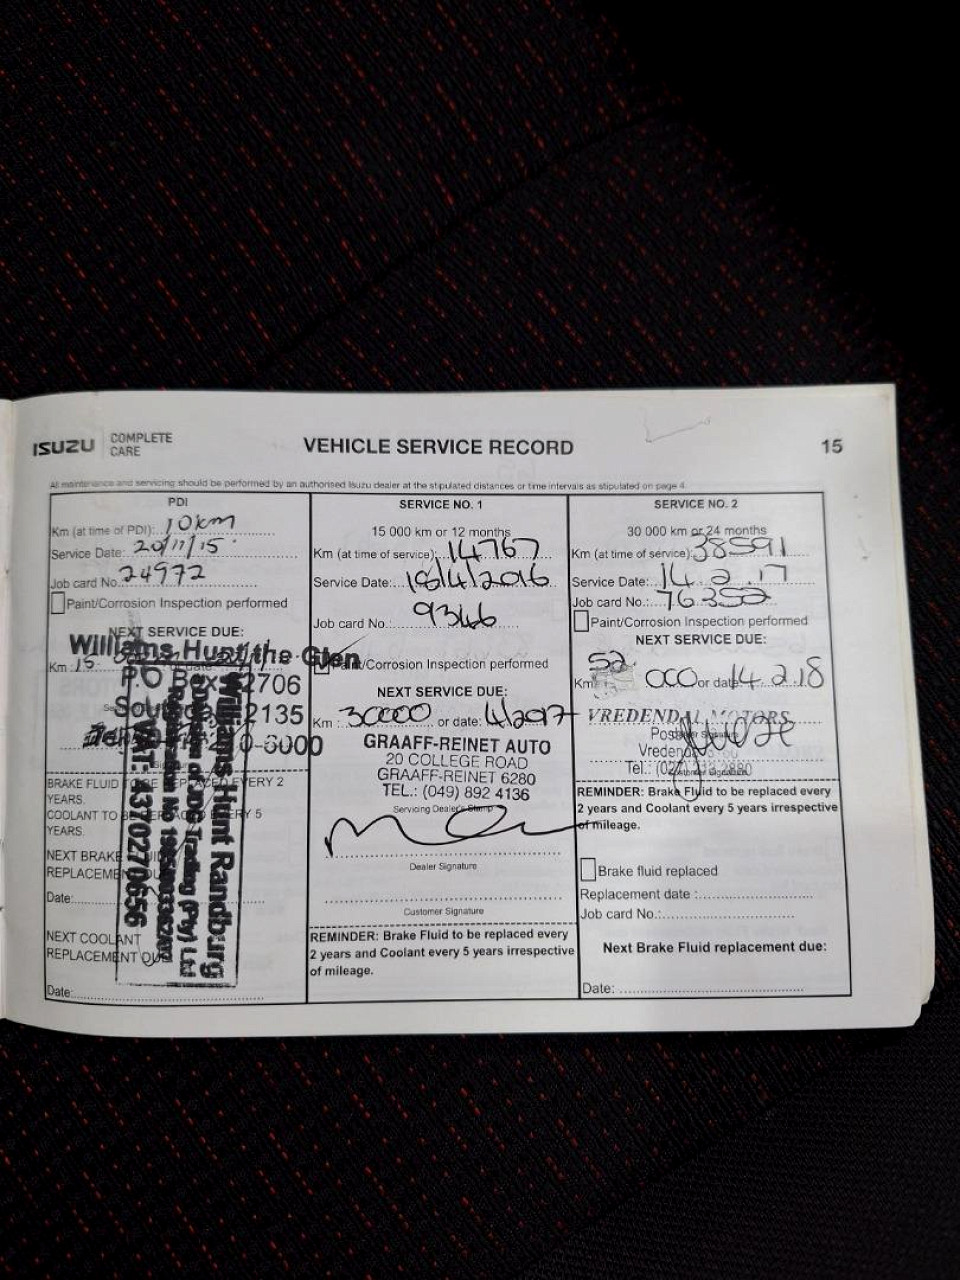 ISUZU COMPLETE CARE
VEHICLE SERVICE RECORD
15
All maintenance and servicing should be performed by an authorised Isuzu dealer at the stipulated distances or time intervals as stipulated on page 4.
PDI
Km (at time of PDI): 10km
Service Date: 20/11/15
Job card No. 24972
Paint/Corrosion Inspection performed
NEXT SERVICE DUE:
Km 15
Williams Hunt the Glen
P.O Box 2706
2135
Williams Hunt Randburg
a Division of JDG Trading (Pty) Ltd
VAT: 4310270656
BRAKE FLUID TO BE REPLACED EVERY 2 YEARS.
COOLANT TO BE REPLACED EVERY 5 YEARS.
NEXT BRAKE FLUID
REPLACEMENT DUE
Date:
NEXT COOLANT
REPLACEMENT DUE
Date:
SERVICE NO. 1
15 000 km or 12 months
Km (at time of service): 14767
Service Date: 18/4/2016
Job card No.: 9346
Paint/Corrosion Inspection performed
NEXT SERVICE DUE:
Km : 30000 or date: 4/2017
GRAAFF-REINET AUTO
20 COLLEGE ROAD
GRAAFF-REINET 6280
TEL.: (049) 892 4136
Servicing Dealer's Stamp
Dealer Signature
Customer Signature
REMINDER: Brake Fluid to be replaced every
2 years and Coolant every 5 years irrespective
of mileage.
SERVICE NO. 2
30 000 km or 24 months
Km (at time of service) 38591
Service Date: 14.2.17
Job card No.: 76352
Paint/Corrosion Inspection performed
NEXT SERVICE DUE:
Km 52 000 or date 14.2.18
VREDENDAL MOTORS
Vredendal
Tel.: (027) 213 2880
Customer Signature
REMINDER: Brake Fluid to be replaced every
2 years and Coolant every 5 years irrespective
of mileage.
Brake fluid replaced
Replacement date :
Job card No.:
Next Brake Fluid replacement due:
Date: